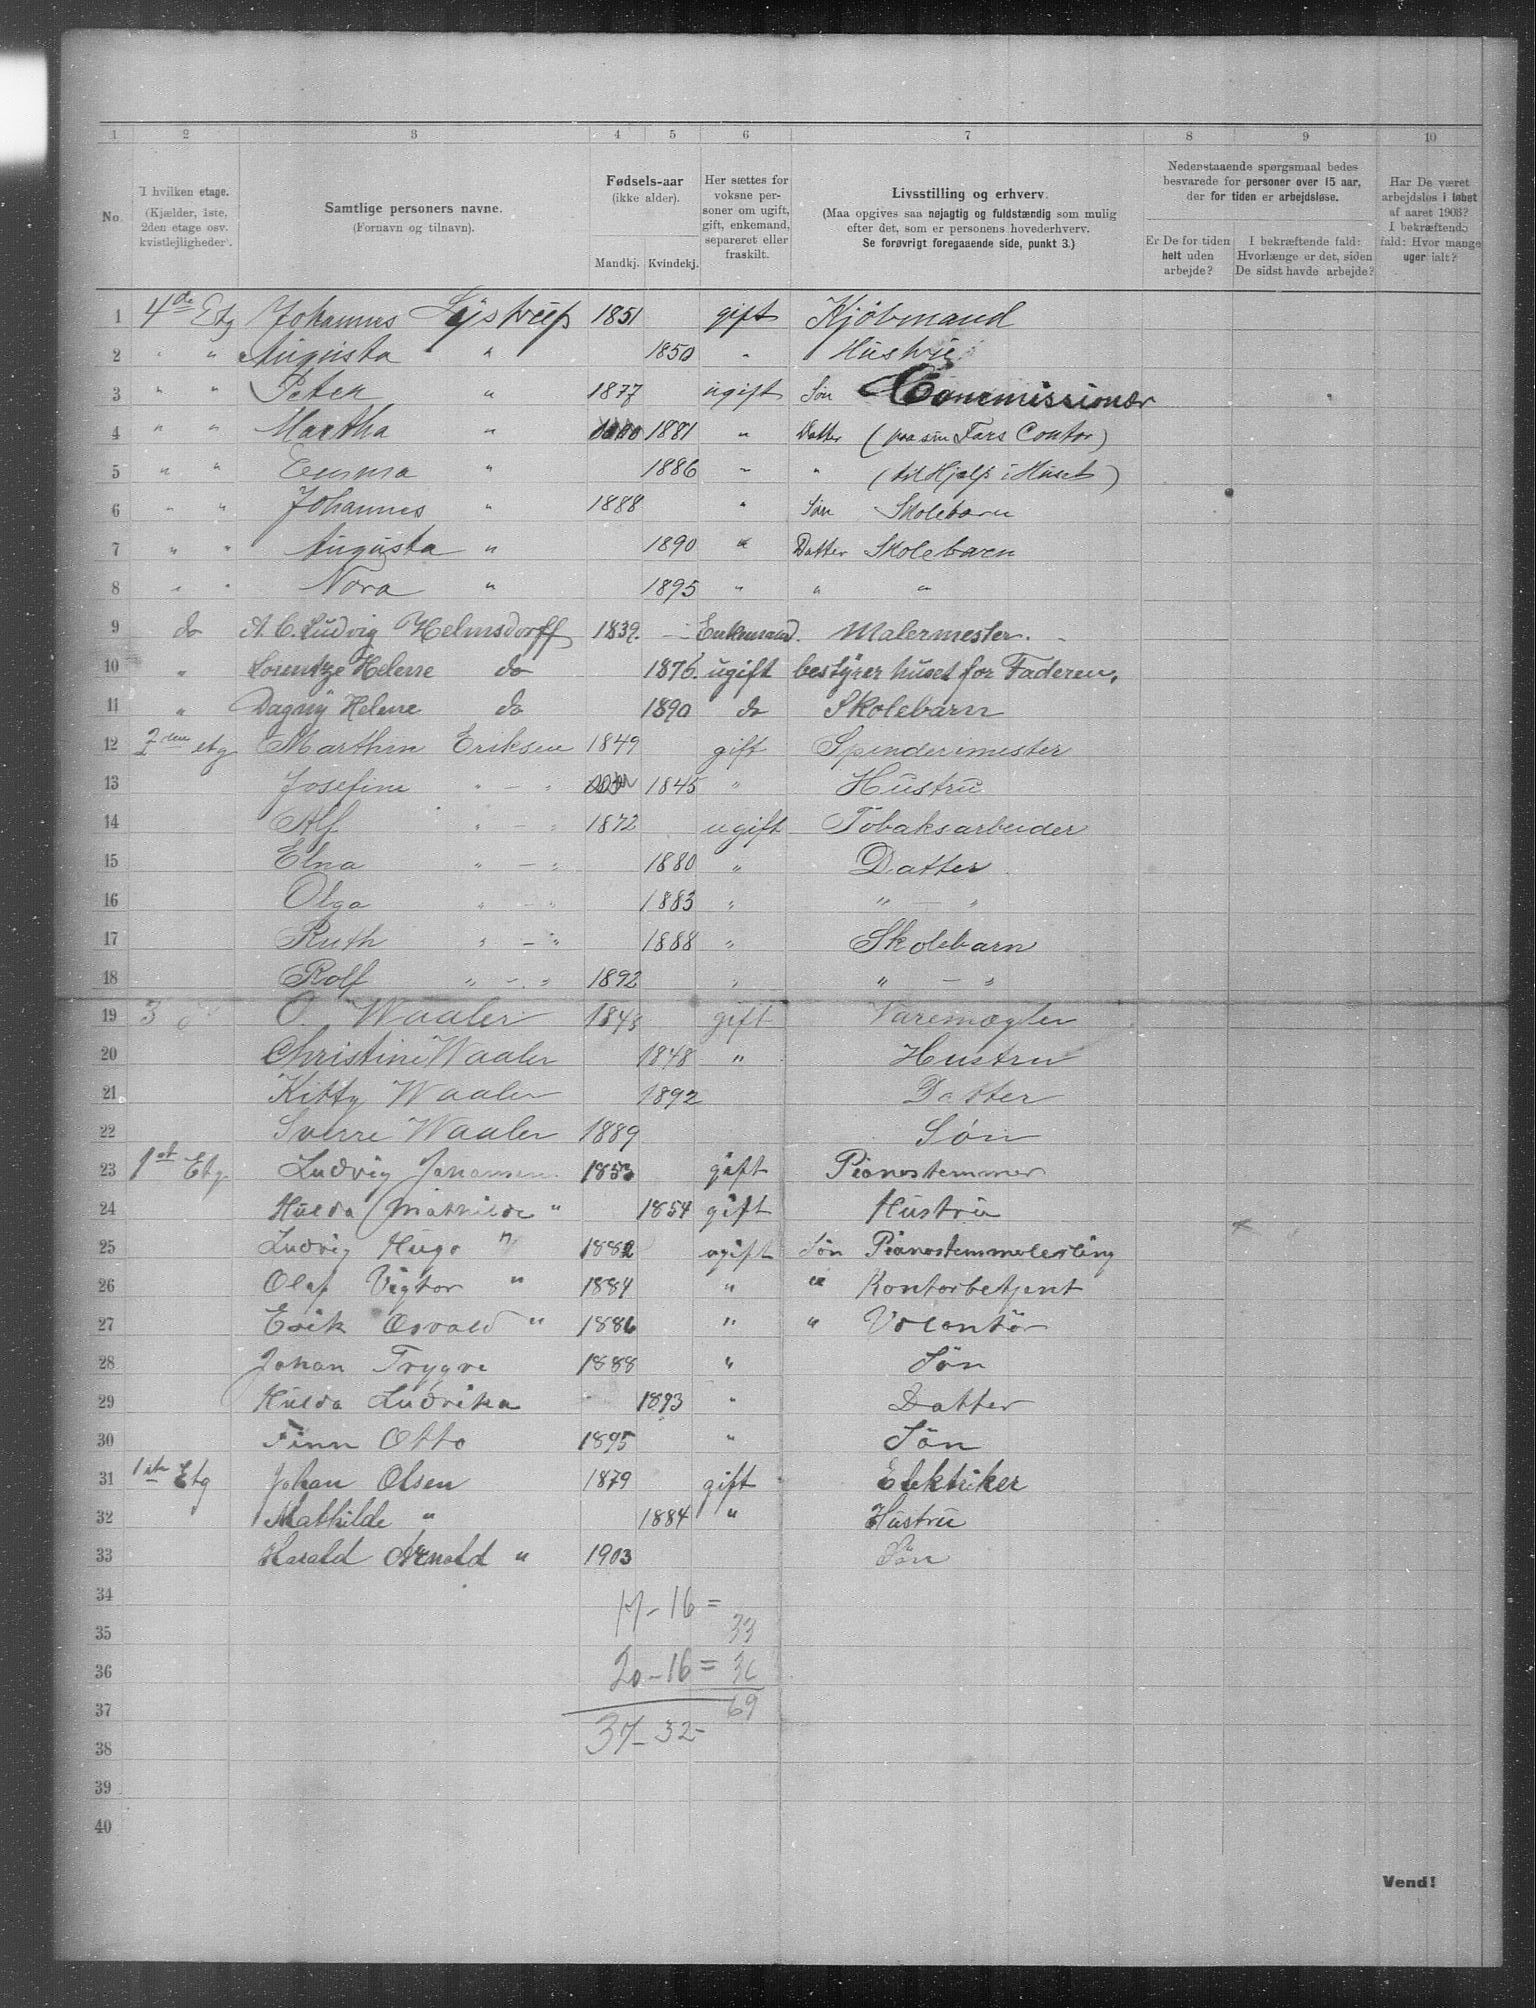 1 2 3 4 5 6 7 8 9 10
No.
I hvilken etage. (Kjælder, 1ste, 2den etage osv. kvistlejligheder).
Samtlige personers navne. (Fornavn og tilnavn).
Fødsels-aar (ikke alder). Mandkj. Kvindekj.
Her sættes for voksne personer om ugift, gift, enkemand, separeret eller fraskilt.
Livsstilling og erhverv. (Maa opgives saa nøjagtig og fuldstændig som mulig efter det, som er personens hovederhverv. Se forøvrigt foregaaende side, punkt 3.)
Nedenstaaende spørgsmaal bedes besvarede for personer over 15 aar, der for tiden er arbejdsløse.
Er De for tiden helt uden arbejde?
I bekræftende fald: Hvorlænge er det, siden De sidst havde arbejde?
Har De været arbejdsløs i løbet af aaret 1903? I bekræftende fald: Hvor mange uger ialt?
1 4de Etg Johannes Lystrup 1851 gift Kjøbmand
2 " " Augusta " 1850 " Hustru
3 " " Peter " 1877 ugift Søn Commissionær
4 " " Martha " 1881 " Datter (paa sin Fars Contor)
5 " " Emma " 1886 " " (til Hjælp i Huset)
6 " " Johannes " 1888 " Søn Skolebarn
7 " " Augusta " 1890 " Datter Skolebarn
8 " " Nora " 1895 " " "
9 do A. C. Ludvig Helmsdorff 1839. — Enkemand. Malermester.
10 " Lorentze Helene do 1876. ugift bestyrer huset for Faderen.
11 " Dagny Helene do 1890 do Skolebarn
12 2den etg Marthin Eriksen 1849 gift Spinderimester
13 Josefine " — " 1845 " Hustru
14 Alf " — " 1872 ugift Tobaksarbeider
15 Elna " — " 1880 " Datter
16 Olga " — " 1883 " " — "
17 Ruth " — " 1888 " Skolebarn
18 Rolf " — " 1892 " " — "
19 3 O. Waaler gift Varemægler
20 Christine Waaler 1848 " Hustru
21 Kitty Waaler 1892 Datter
22 Sverre Waaler 1889 Søn
23 1ste Etg. Ludvig Johansen 1853 gift Pianostemmer
24 Hulda Mathilde " 1854 gift Hustru
25 Ludvig Hugo " 1882 ugift Søn Pianostemmelerling
26 Olaf Vigtor " 1884 " " Kontorbetjent
27 Erik Osvald " 1886 " " Volontør
28 Johan Trygve 1888 " Søn
29 Hulda Ludvika 1893 " Datter
30 Finn Otto 1895 " Søn
31 1ste Etg Johan Olsen 1879 gift Elektriker
32 Mathilde " 1884 " Hustru
33 Harald Arnold " 1903 Søn
34 17 - 16 =
35 33
36 20 - 16 = 36
37 69
38 37 - 32 -
39
40
Vend!